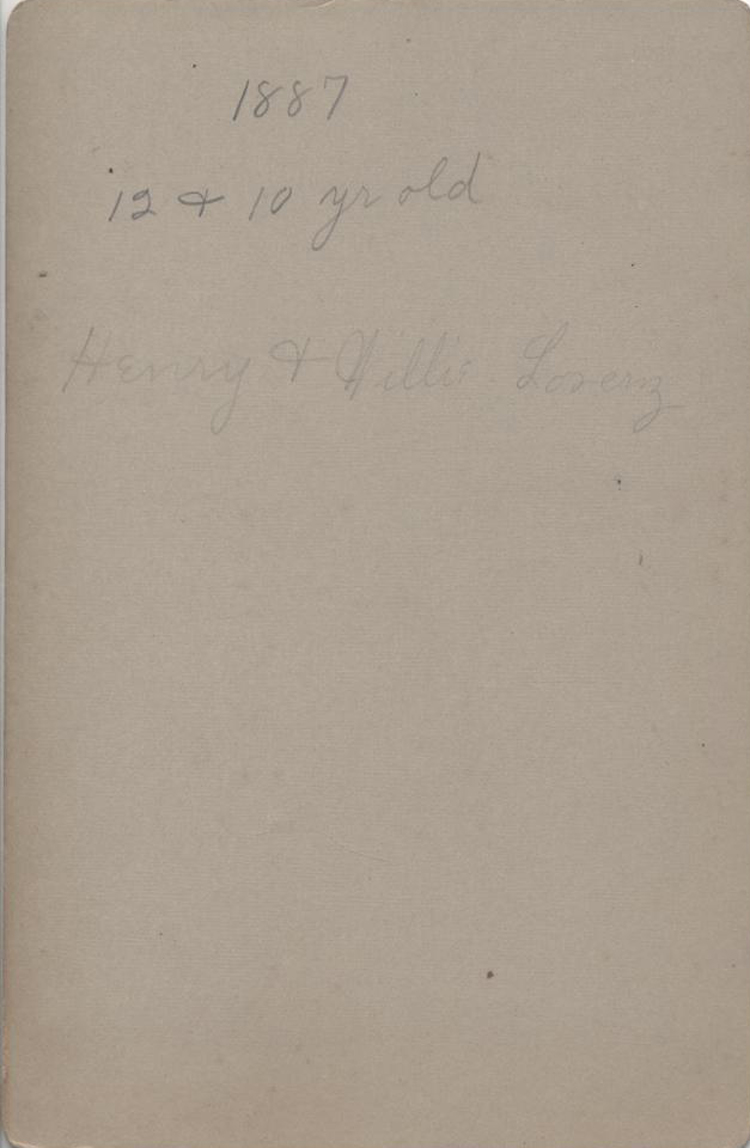 1887
12 & 10 yr old
Henry & Willie Lorenz